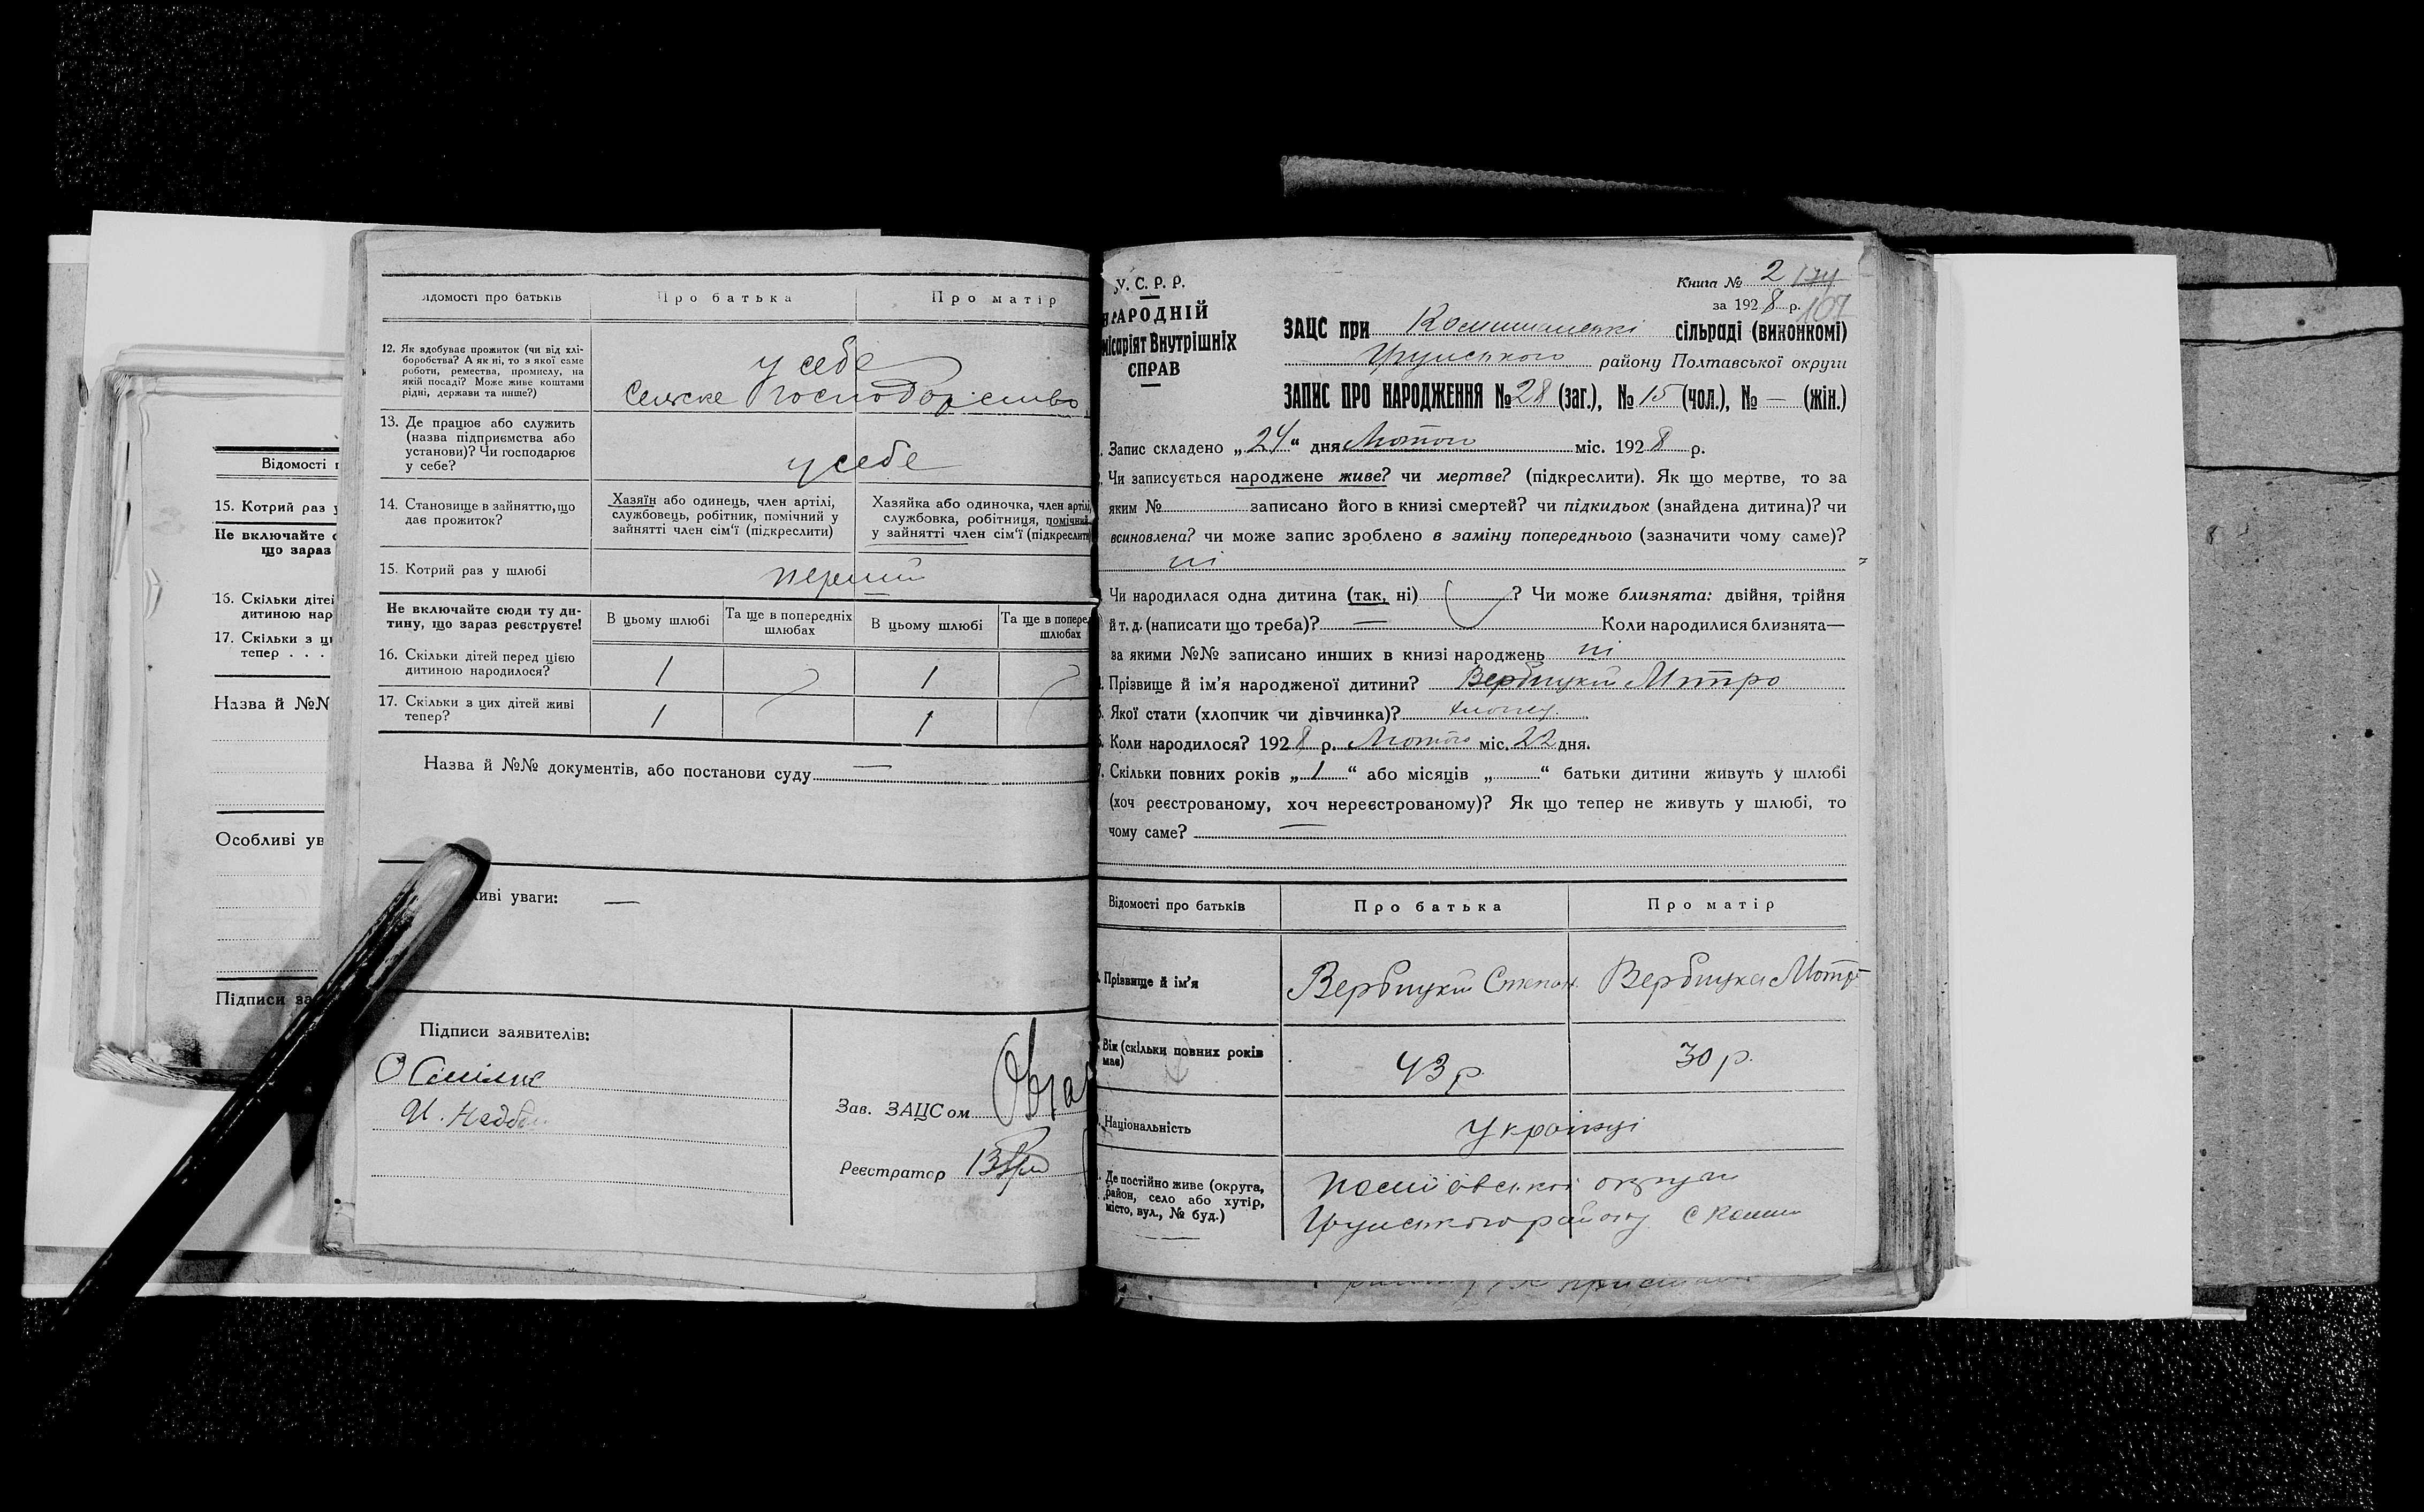 Відомості п
15. Котрий раз у
Не включайте с
що зараз
16. Скільки діте
дитиною нар
17. Скільки з ц
тепер . . .
Назва й №№
Особливі ув
Підписи за
ідомості про батьків Про батька Про матір
12. Як здобуває прожиток (чи від хлі-
боробства? А як ні, то з якої саме
роботи, ремества, промислу, на
якій посаді? Може живе коштами
рідні, держави та инше?)
у себе
Сельске господарство
13. Де працює або служить
(назва підприємства або
установи)? Чи господарює
у себе?
у себе
14. Становище в зайняттю, що
дає прожиток?
Хазяїн або одинець, член артілі,
службовець, робітник, помічний у
зайнятті член сім'ї (підкреслити)
Хазяйка або одиночка, член артілі,
службовка, робітниця, помічний
у зайнятті член сім'ї (підкреслити)
15. Котрий раз у шлюбі перший
Не включайте сюди ту ди-
тину, що зараз реєструєте!
В цьому шлюбі Та ще в попередніх
шлюбах
В цьому шлюбі Та ще в попере
шлюбах
16. Скільки дітей перед цією
дитиною народилося? 1 1
17. Скільки з цих дітей живі
тепер? 1 1
Назва й №№ документів, або постанови суду —
иві уваги: —
Підписи заявителів:
Зав. ЗАЦСом
Реєстратор
У. С. Р. Р.
НАРОДНІЙ
місаріят Внутрішніх
СПРАВ
Книга № 2 174
за 1928 р. 107
ЗАЦС при сільраді (виконкомі)
Грунського району Полтавської округи
ЗАПИС ПРО НАРОДЖЕННЯ № 28 (заг.), № 15 (чол.), № — (жін.)
Запис складено „24“ дня Лютого міс. 1928 р.
Чи записується народжене живе? чи мертве? (підкреслити). Як що мертве, то за
яким № записано його в книзі смертей? чи підкидьок (знайдена дитина)? чи
всиновлена? чи може запис зроблено в заміну попереднього (зазначити чому саме)?
ні
Чи народилася одна дитина (так, ні) ? Чи може близнята: двійня, трійня
й т. д. (написати що треба)? — Коли народилися близнята—
за якими №№ записано инших в книзі народжень ні
Прізвище й ім'я народженої дитини? Вербицкий Митро
Якої стати (хлопчик чи дівчинка)? хлопец
Коли народилося? 1928 р. Лютого міс. 22 дня.
Скільки повних років „1“ або місяців „ “ батьки дитини живуть у шлюбі
(хоч реєстрованому, хоч нереєстрованому)? Як що тепер не живуть у шлюбі, то
чому саме? —
Відомості про батьків Про батька Про матір
Прізвище й ім'я Вербицкий Степан Вербицка Мотр
Вік (скільки повних років
має) 43 р. 30 р.
Національність Українці
Де постійно живе (округа,
район, село або хутір,
місто, вул., № буд.)
Полтавської округи
Грунського району с